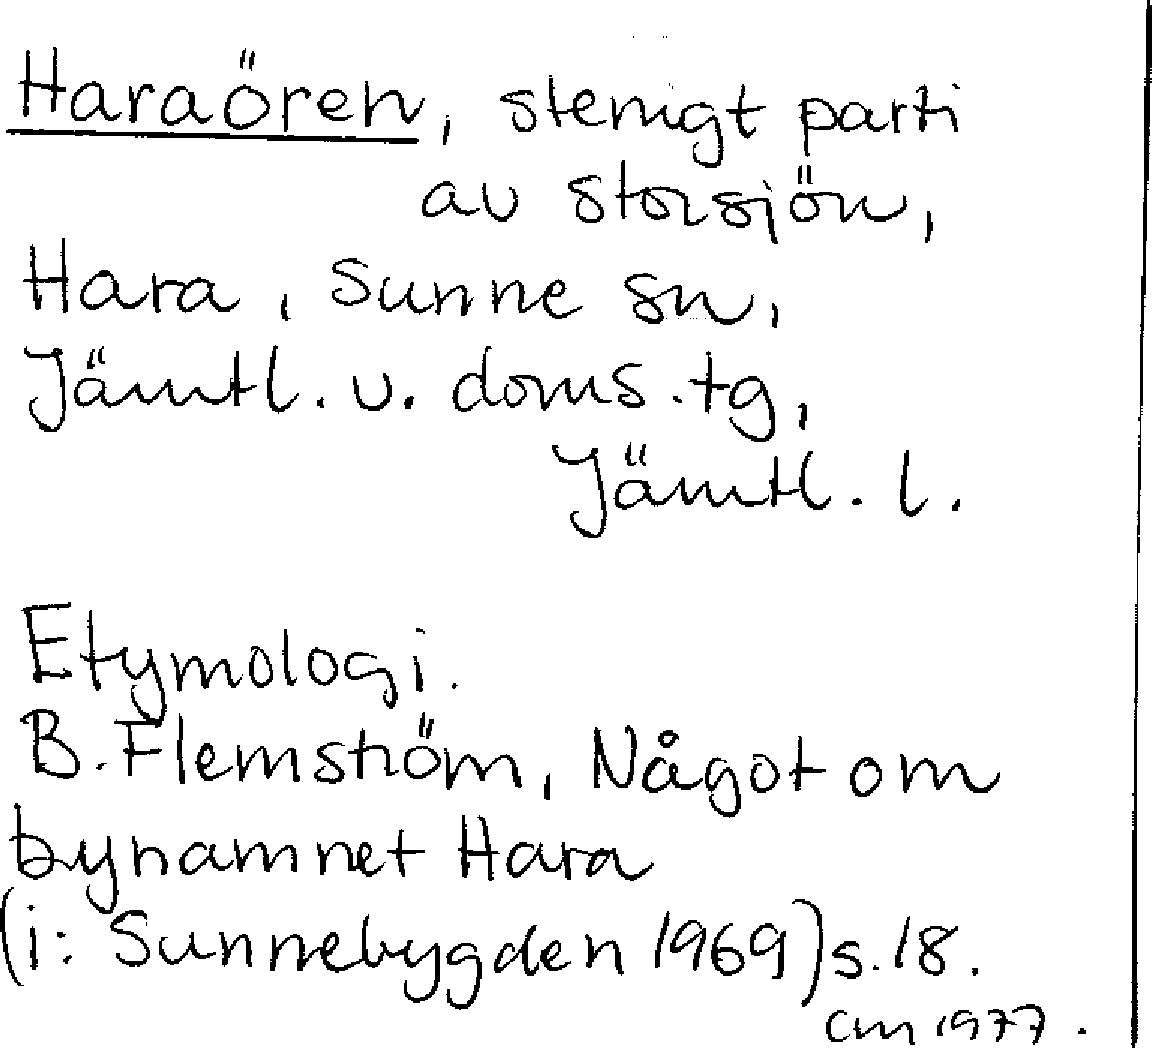 Haraören, stenigt parti
av Storsjön,
Hara, Sunne sn,
Jämtl. v. doms.tg,
Jämtl. l.
Etymologi.
B. Flemström, Något om
bynamnet Hara
(i: Sunnebygden 1969) s. 18.
CM 1977.